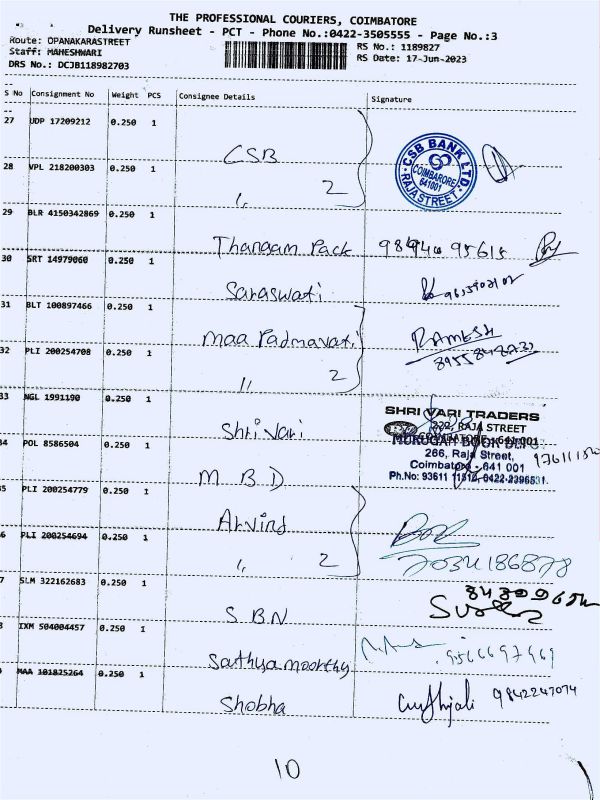 THE PROFESSIONAL COURIERS, COIMBATORE
Delivery Runsheet - PCT - Phone No.:0422-3505555 - Page No.:3
Route: OPANAKARASTREET
Staff: MAHESHWARI
DRS No.: DCJB118982703
RS No.: 1189827
RS Date: 17-Jun-2023
S No Consignment No Weight PCS Consignee Details Signature
27 UDP 17209212 0.250 1 CSB
CSB BANK LTD.
COIMBATORE
641001
RAJA STREET
28 VPL 218200303 0.250 1 " 2
29 BLR 4150342869 0.250 1 Thangam Pack
30 SRT 14979060 0.250 1 Saraswati
31 BLT 100897466 0.250 1 Maa Padmavati RAMESH
32 PLI 200254708 0.250 1 " 2
33 NGL 1991190 0.250 1 Shri Vari
SHRI VARI TRADERS
222, RAJA STREET
COIMBATORE - 641 001
34 POL 8586504 0.250 1 M B D
MURUGAN BOOK DEPO
266, Raja Street,
Coimbatore - 641 001
Ph.No: 93611 11512, 0422-2396531.
5 PLI 200254779 0.250 1 Arvind
6 PLI 200254694 0.250 1 " 2
7034186878
7 SLM 322162683 0.250 1 S.B.N
IXM 504004457 0.250 1 Sathya moorthy 9566697969
MAA 101825264 0.250 1 Shobha 9842247074
10